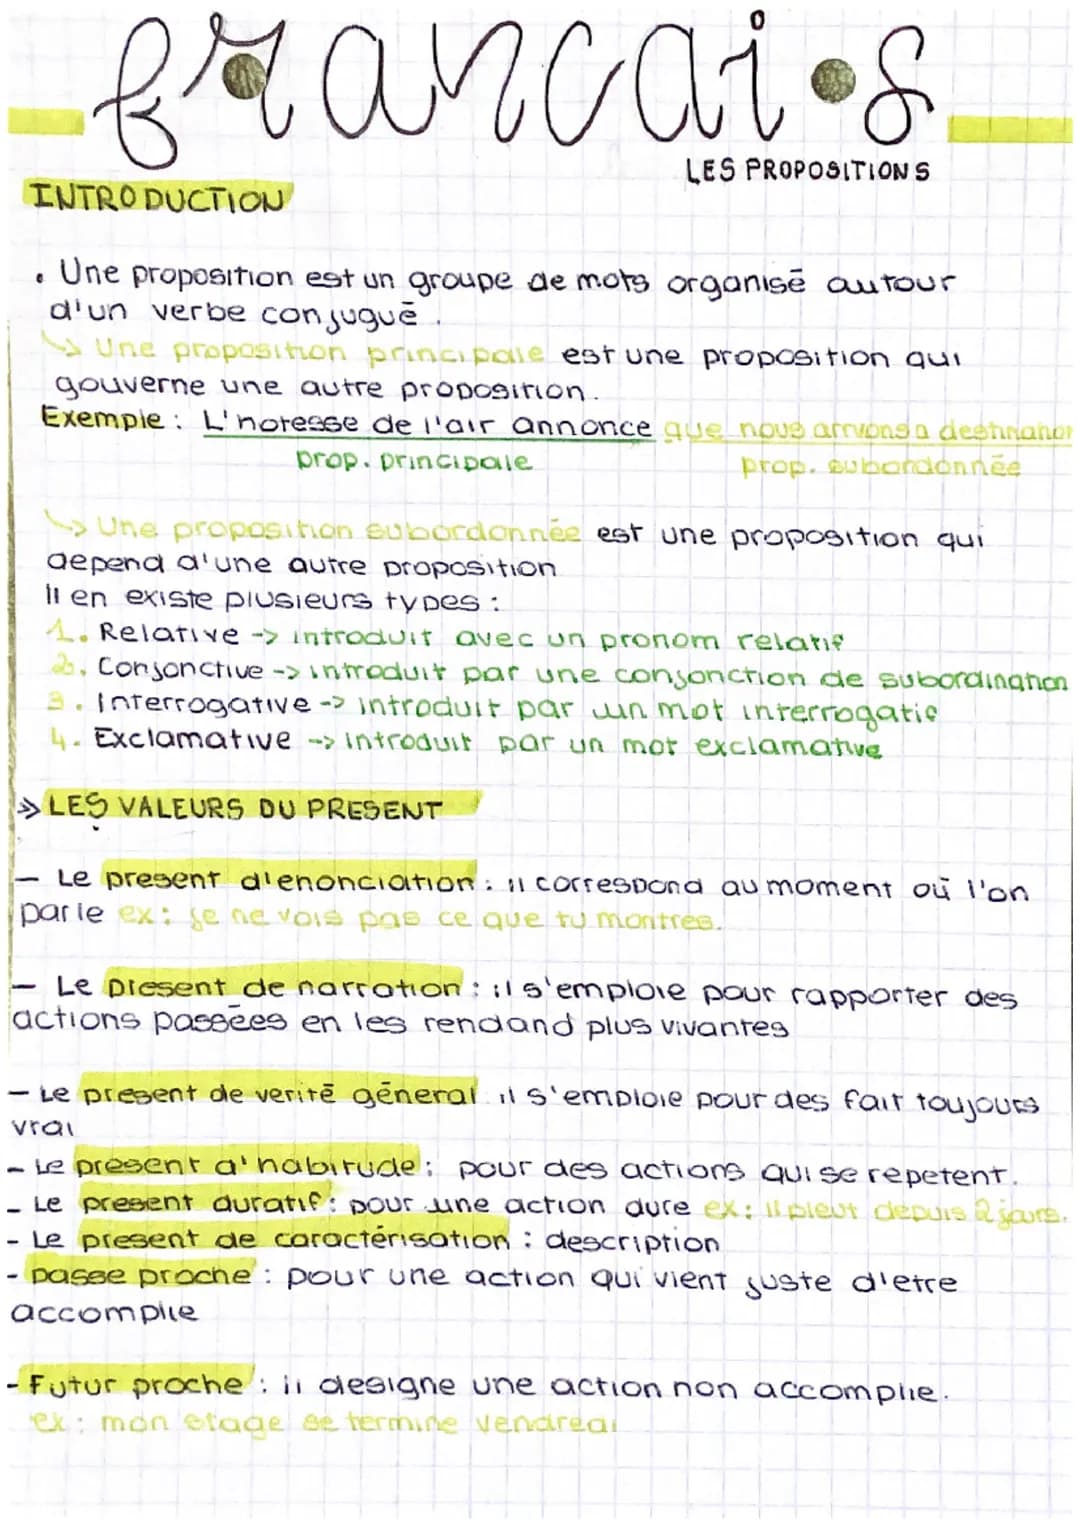 francais
LES PROPOSITIONS
INTRODUCTION
. Une proposition est un groupe de mots organisé autour
d'un verbe conjugué.
↳ Une proposition principale est une proposition qui
gouverne une autre proposition.
Exemple : L'hotesse de l'air annonce que nous arrivons a destination
prop. principale prop. subordonnée
↳ Une proposition subordonnée est une proposition qui
depend d'une autre proposition
Il en existe plusieurs types :
1. Relative -> introduit avec un pronom relatif
2. Conjonctive -> introduit par une conjonction de subordination
3. Interrogative -> introduit par un mot interrogatif
4. Exclamative -> introduit par un mot exclamative
» LES VALEURS DU PRESENT
- Le present d'enonciation : il correspond au moment où l'on
parle ex : je ne vois pas ce que tu montres.
- Le present de narration : il s'emploie pour rapporter des
actions passées en les rendand plus vivantes
- Le present de verité géneral il s'emploie pour des fait toujours
vrai
- Le present d'habitude : pour des actions qui se repetent.
- Le present duratif : pour une action dure ex : il pleut depuis 2 jours.
- Le present de caractérisation : description
- passe proche : pour une action qui vient juste d'etre
accomplie
- Futur proche : il designe une action non accomplie.
ex : mon stage se termine vendredi